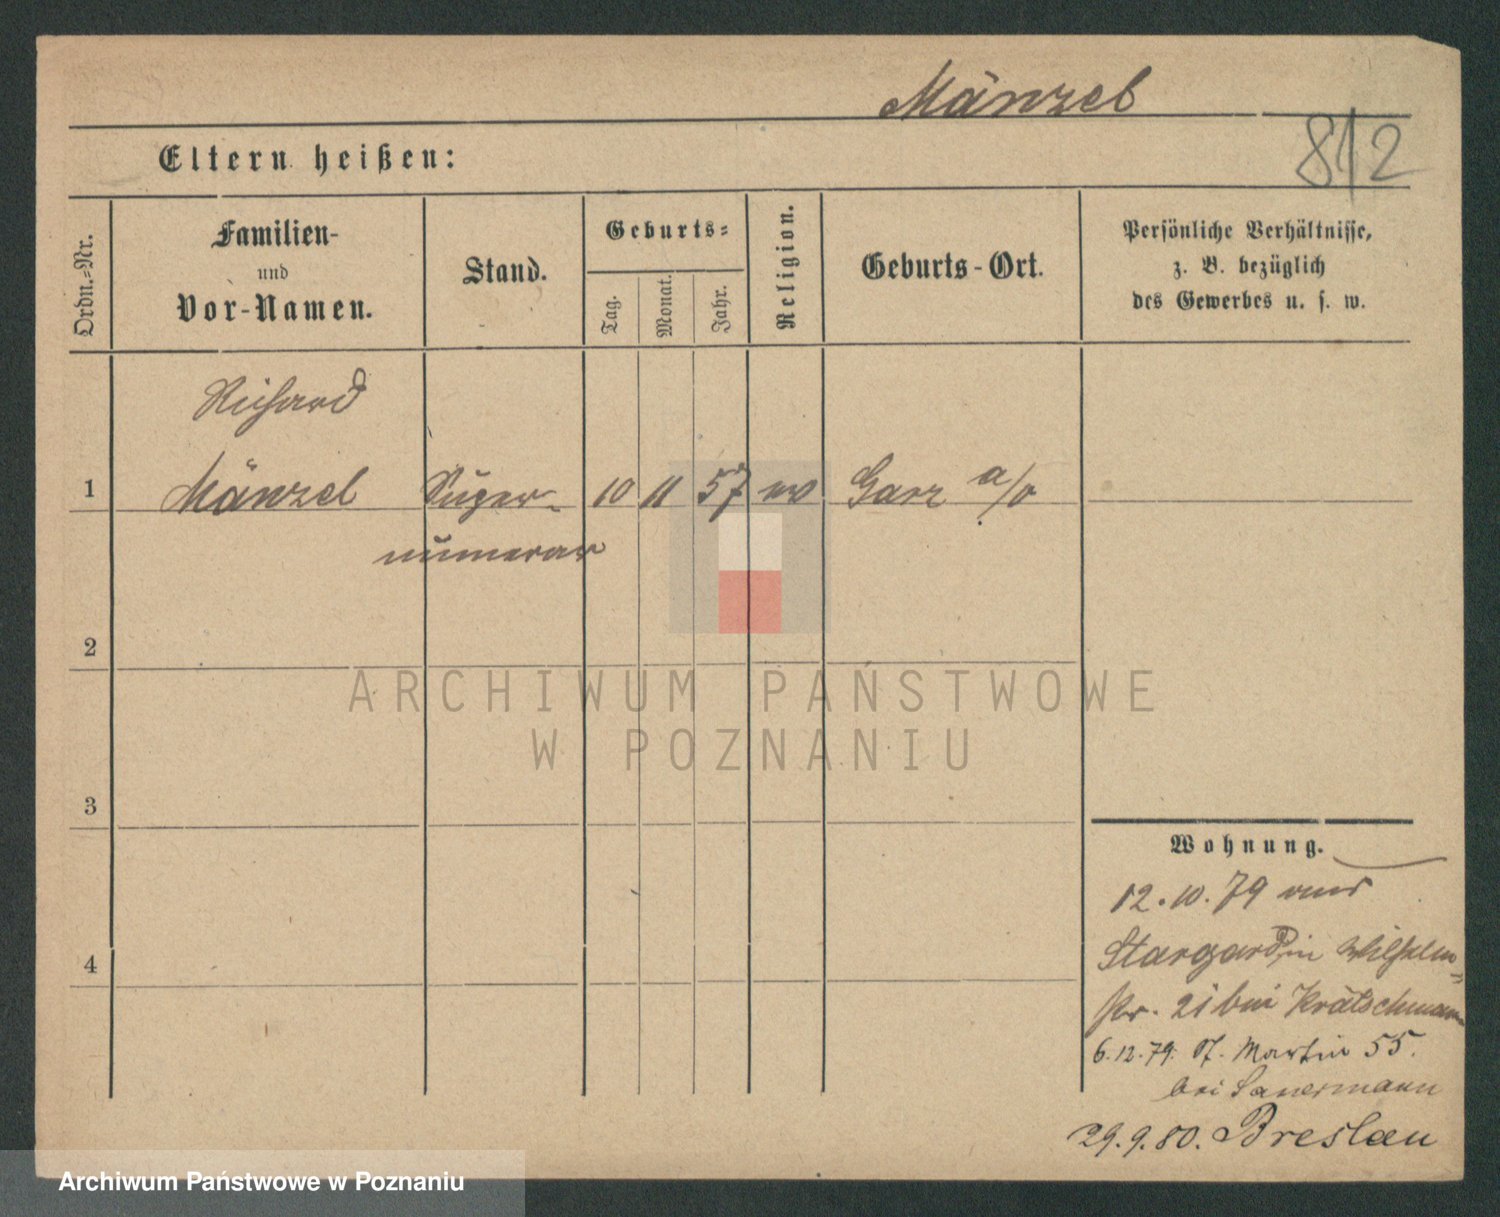 Mänzel
812
Eltern heißen:
Ordn.-Nr.
Familien-
und
Vor-Namen.
Stand.
Geburts-
Tag.
Monat.
Jahr.
Religion.
Geburts-Ort.
Persönliche Verhältnisse,
z. B. bezüglich
des Gewerbes u. s. w.
Richard
1 Mänzel Super- 10 11 57 ev Garz a/o
numerar
2
3
4
Wohnung.
12.10.79 aus
Stargard in Wilhelm-
str. 21 bei Krätschmann
6.12.79. St. Martin 55.
bei Sauermann
29.9.80. Breslau
ARCHIWUM PAŃSTWOWE
W POZNANIU
Archiwum Państwowe w Poznaniu